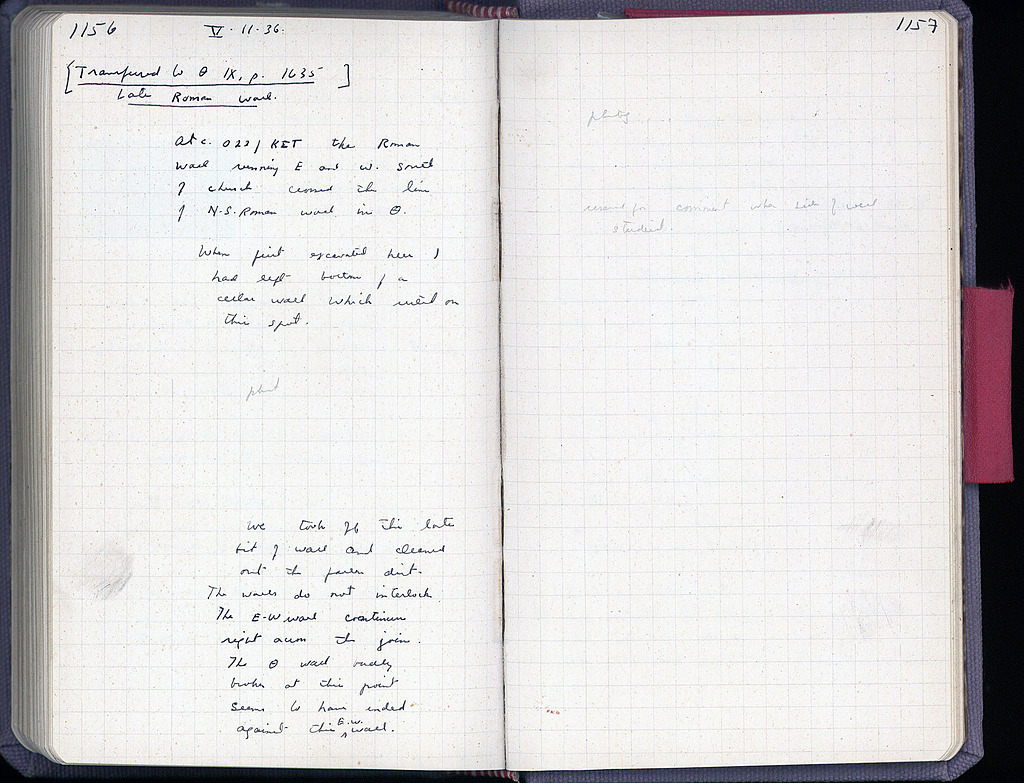 1156 V · 11 · 36.
[Transferred to Θ IX, p. 1635]
Late Roman wall.
At c. 022/KET the Roman
wall running E and W. south
of church crossed the line
of N-S. Roman wall in Θ.
When first excavated here I
had left bottom of a
cellar wall which rested on
this spot.
photo
We took off this late
bit of wall and cleaned
out the fallen dirt.
The walls do not interlock.
The E-W wall continues
right across the join.
The Θ wall badly
broken at this point
seems to have ended
against this E.W. wall.
1157
photog
reserved for comment when side of wall
studied.